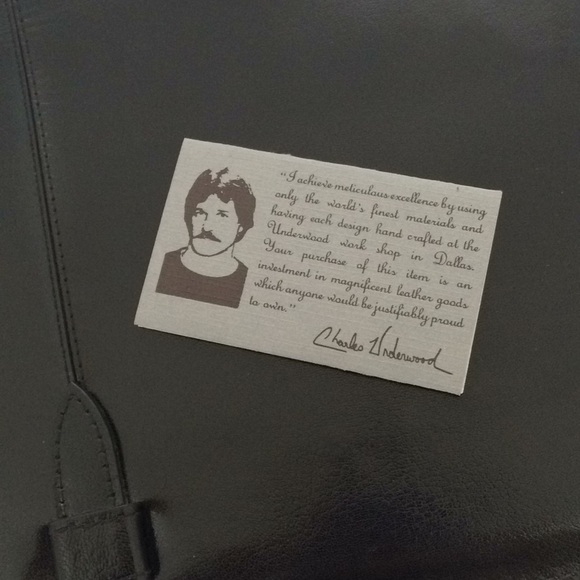 "I achieve meticulous excellence by using
only the world's finest materials and
having each design hand crafted at the
Underwood work shop in Dallas.
Your purchase of this item is an
investment in magnificent leather goods
which anyone would be justifiably proud
to own."
Charles Underwood